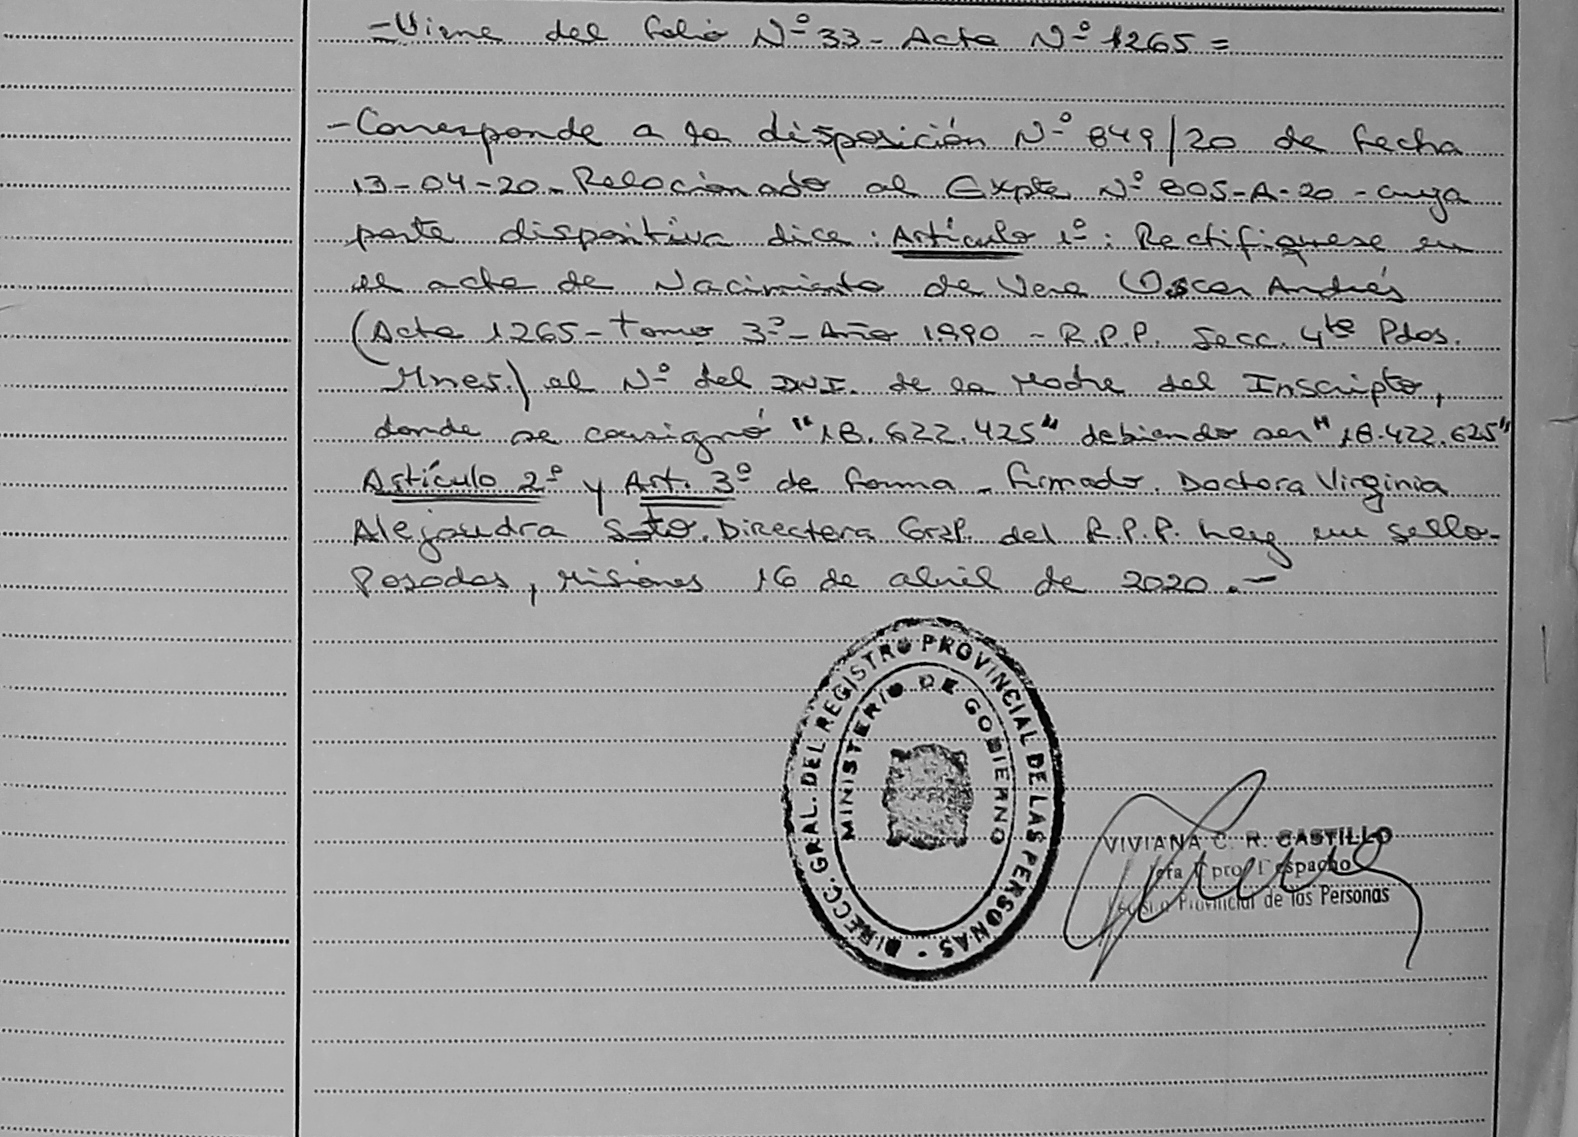 =Viene del folio Nº 33- Acta Nº 1265=
-Corresponde a la disposición Nº 849/20 de fecha
13-04-20- Relacionado al Expte Nº 805-A-20 - cuya
parte dispositiva dice: Artículo 1º: Rectifiquese en
el acta de Nacimiento de Vera Oscar Andrés
(Acta 1265- Tomo 3º- Año 1990 - R.P.P. Secc. 4ta Pdas.
Mnes.) el Nº del DNI. de la Madre del Inscripto,
donde se consignó "18.622.425" debiendo ser "18.422.625"
Artículo 2º y Art. 3º de forma - firmado. Doctora Virginia
Alejandra Soto. Directora Gral. del R.P.P. hay un sello-
Posadas, Misiones 16 de abril de 2020.-
DIRECC. GRAL. DEL REGISTRO PROVINCIAL DE LAS PERSONAS
MINISTERIO DE GOBIERNO
VIVIANA C. R. CASTILLO
Despacho
Provincial de las Personas